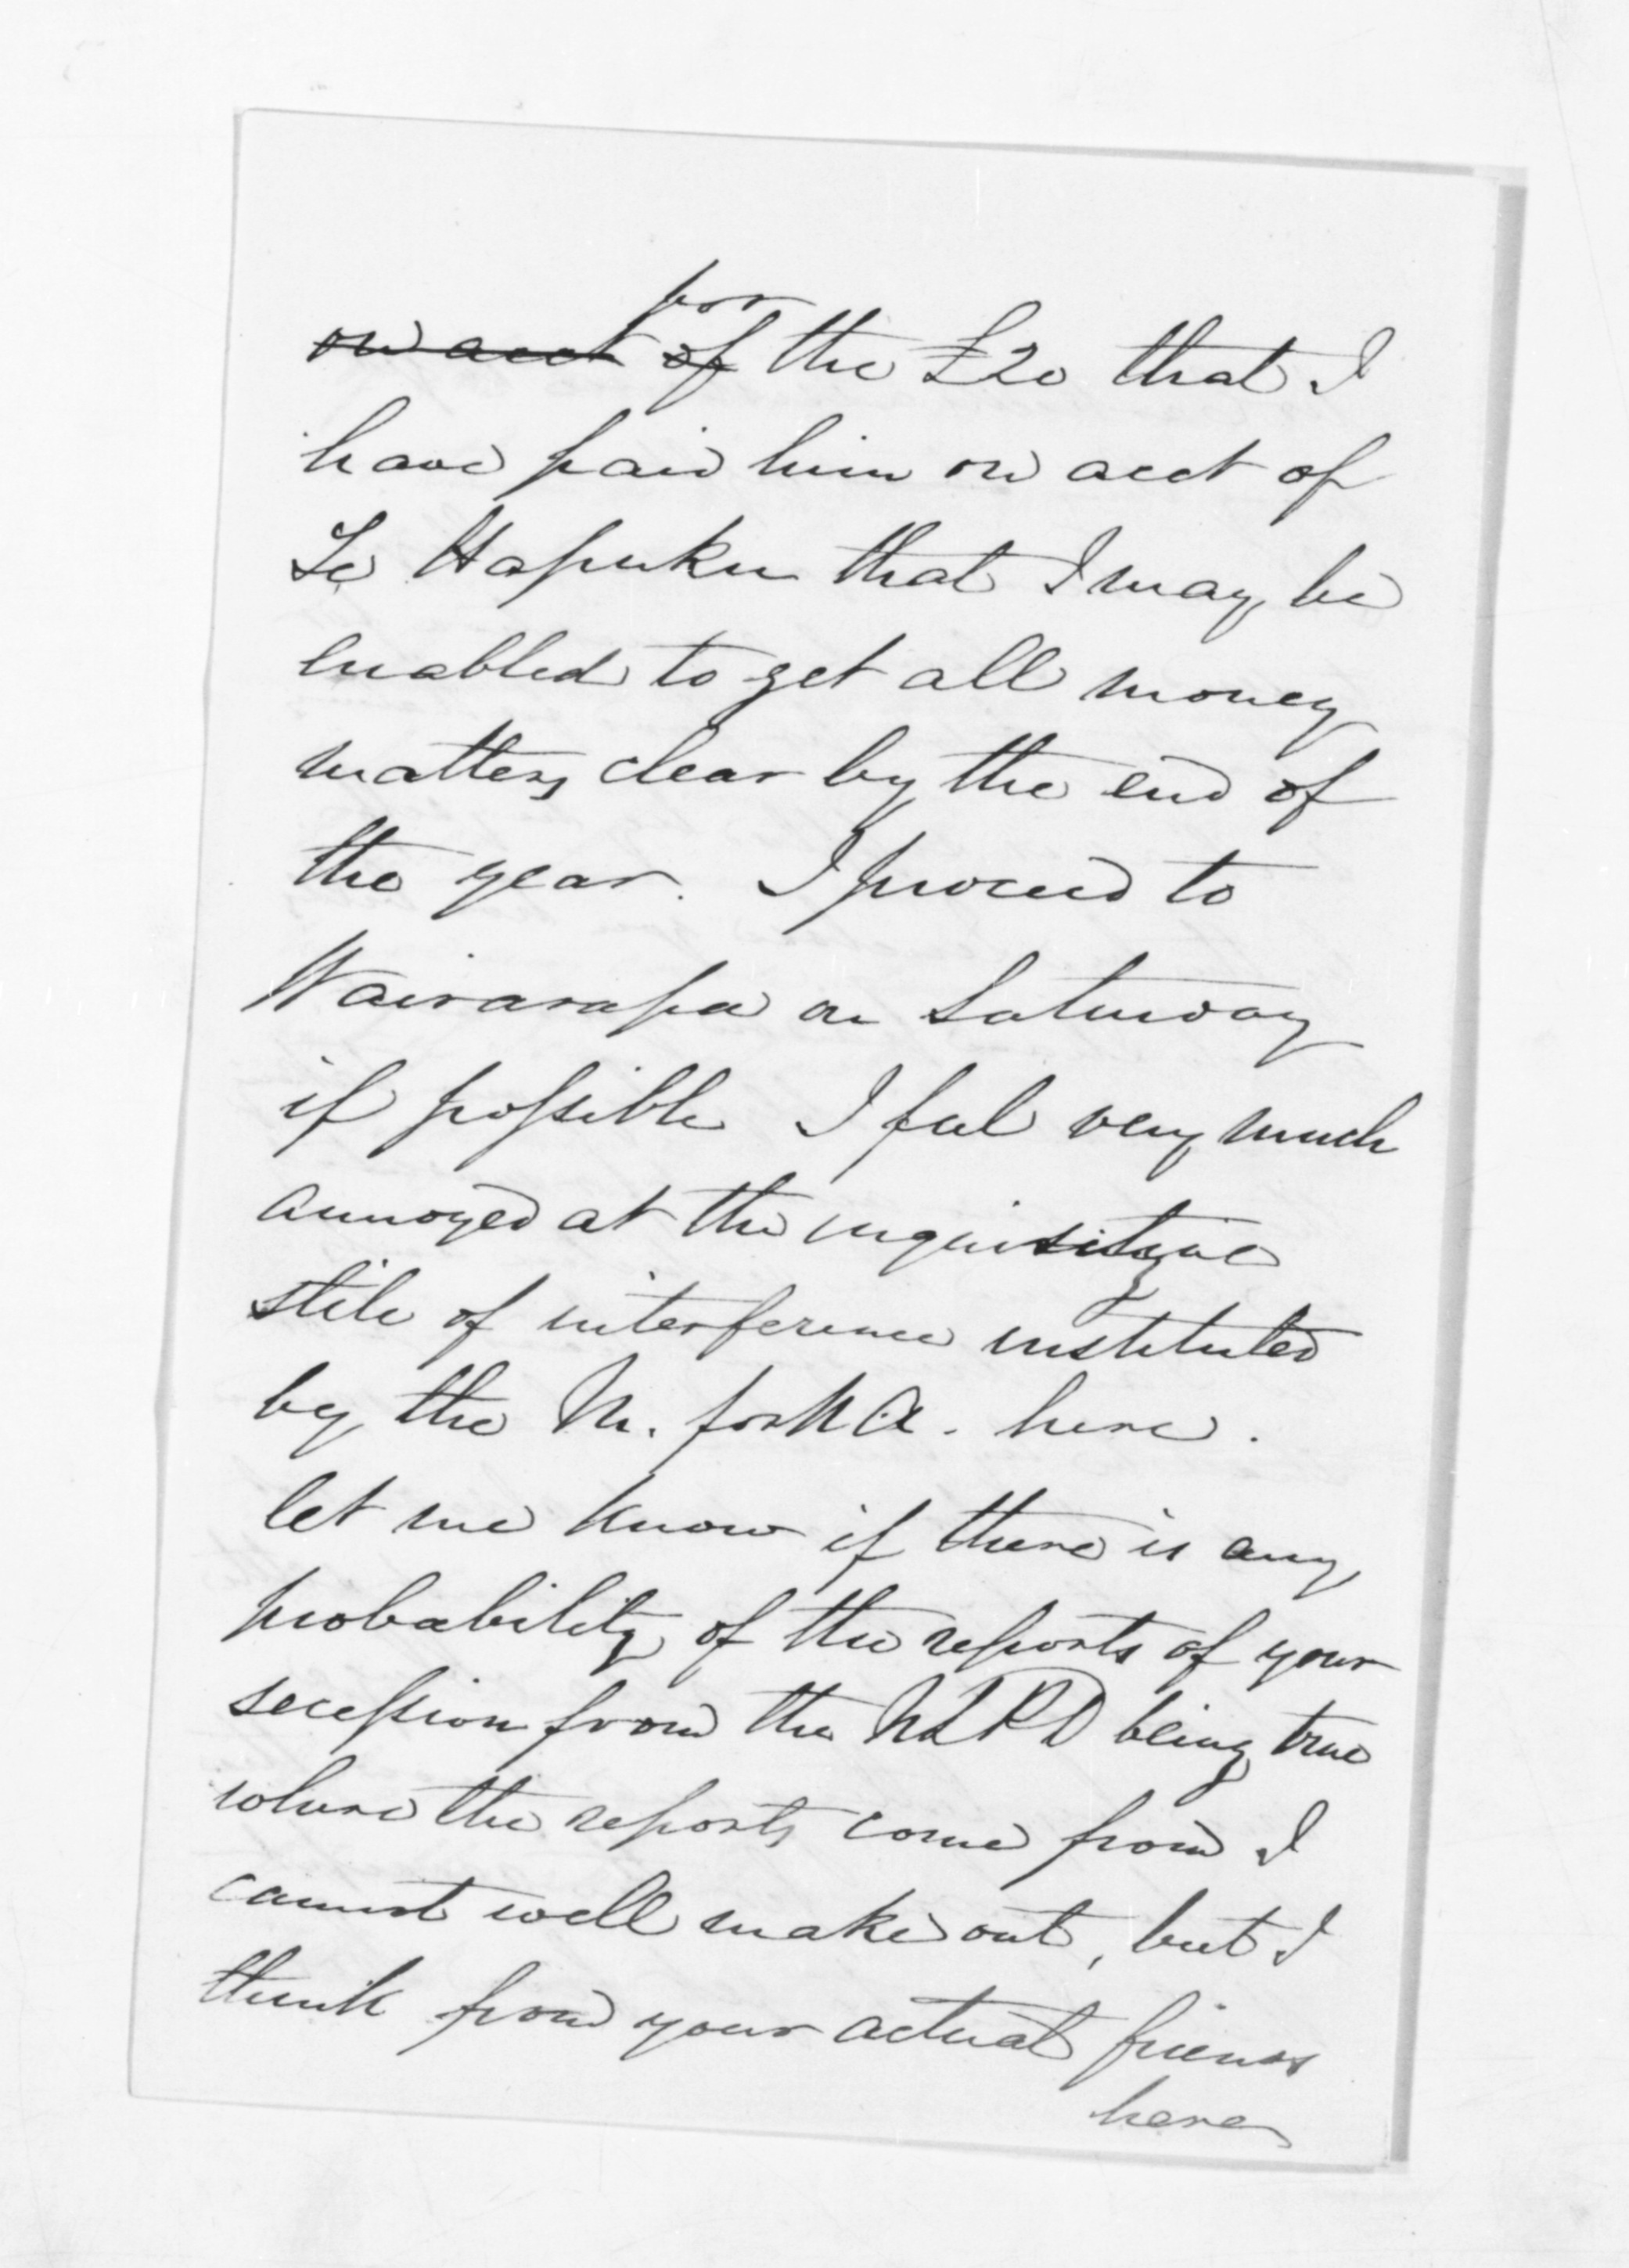 for
on acct of the £20 that I
have paid him on acct of
Te Hapuku that I may be
enabled to get all money
matters clear by the end of
the year. I proceed to
Wairarapa on Saturday
if possible I feel very much
annoyed at the inquisitive
stile of interference instituted
by the M. for N A. here.
let me know if there is any
probability of the reports of your
secession from the NLPD being true
where the reports come from I
cannot well make out, but I
think from your actual friends
here